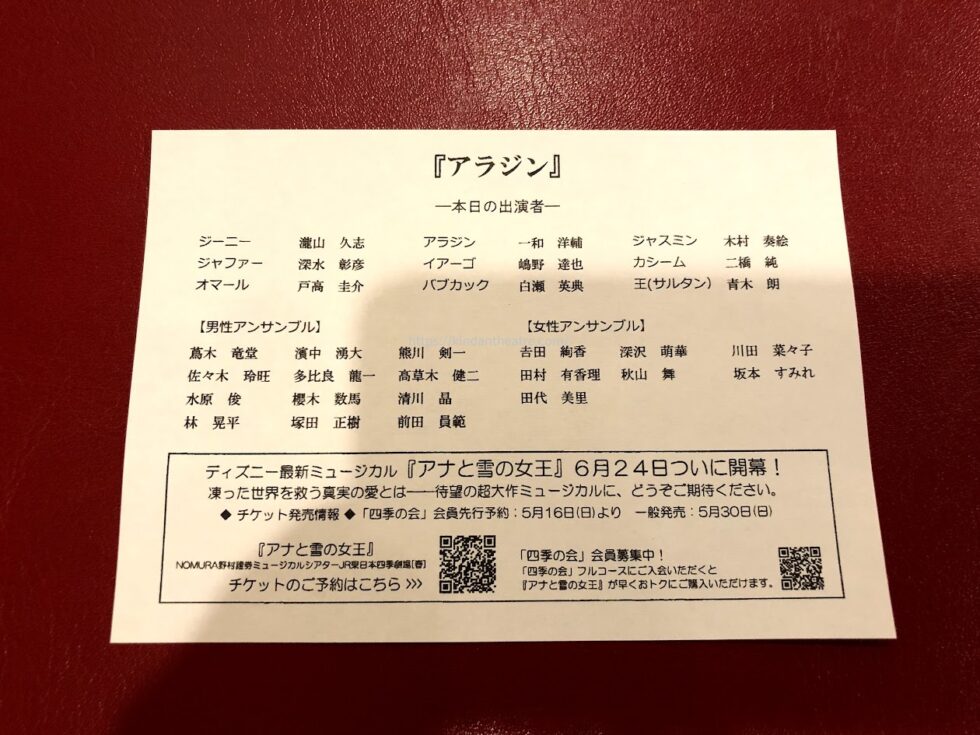 『アラジン』
―本日の出演者―
ジーニー 瀧山 久志 アラジン 一和 洋輔 ジャスミン 木村 奏絵
ジャファー 深水 彰彦 イアーゴ 嶋野 達也 カシーム 二橋 純
オマール 戸高 圭介 バブカック 白瀬 英典 王(サルタン) 青木 朗
【男性アンサンブル】 【女性アンサンブル】
蔦木 竜堂 濱中 湧大 熊川 剣一 吉田 絢香 深沢 萌華 川田 菜々子
佐々木 玲旺 多比良 龍一 髙草木 健二 田村 有香理 秋山 舞 坂本 すみれ
水原 俊 櫻木 数馬 清川 晶 田代 美里
林 晃平 塚田 正樹 前田 員範
ディズニー最新ミュージカル『アナと雪の女王』6月24日ついに開幕！
凍った世界を救う真実の愛とは――待望の超大作ミュージカルに、どうぞご期待ください。
◆ チケット発売情報 ◆「四季の会」会員先行予約：5月16日(日)より 一般発売：5月30日(日)
『アナと雪の女王』
NOMURA野村證券ミュージカルシアターJR東日本四季劇場[春]
チケットのご予約はこちら >>>
「四季の会」会員募集中！
「四季の会」フルコースにご入会いただくと
『アナと雪の女王』が早くおトクにご購入いただけます。